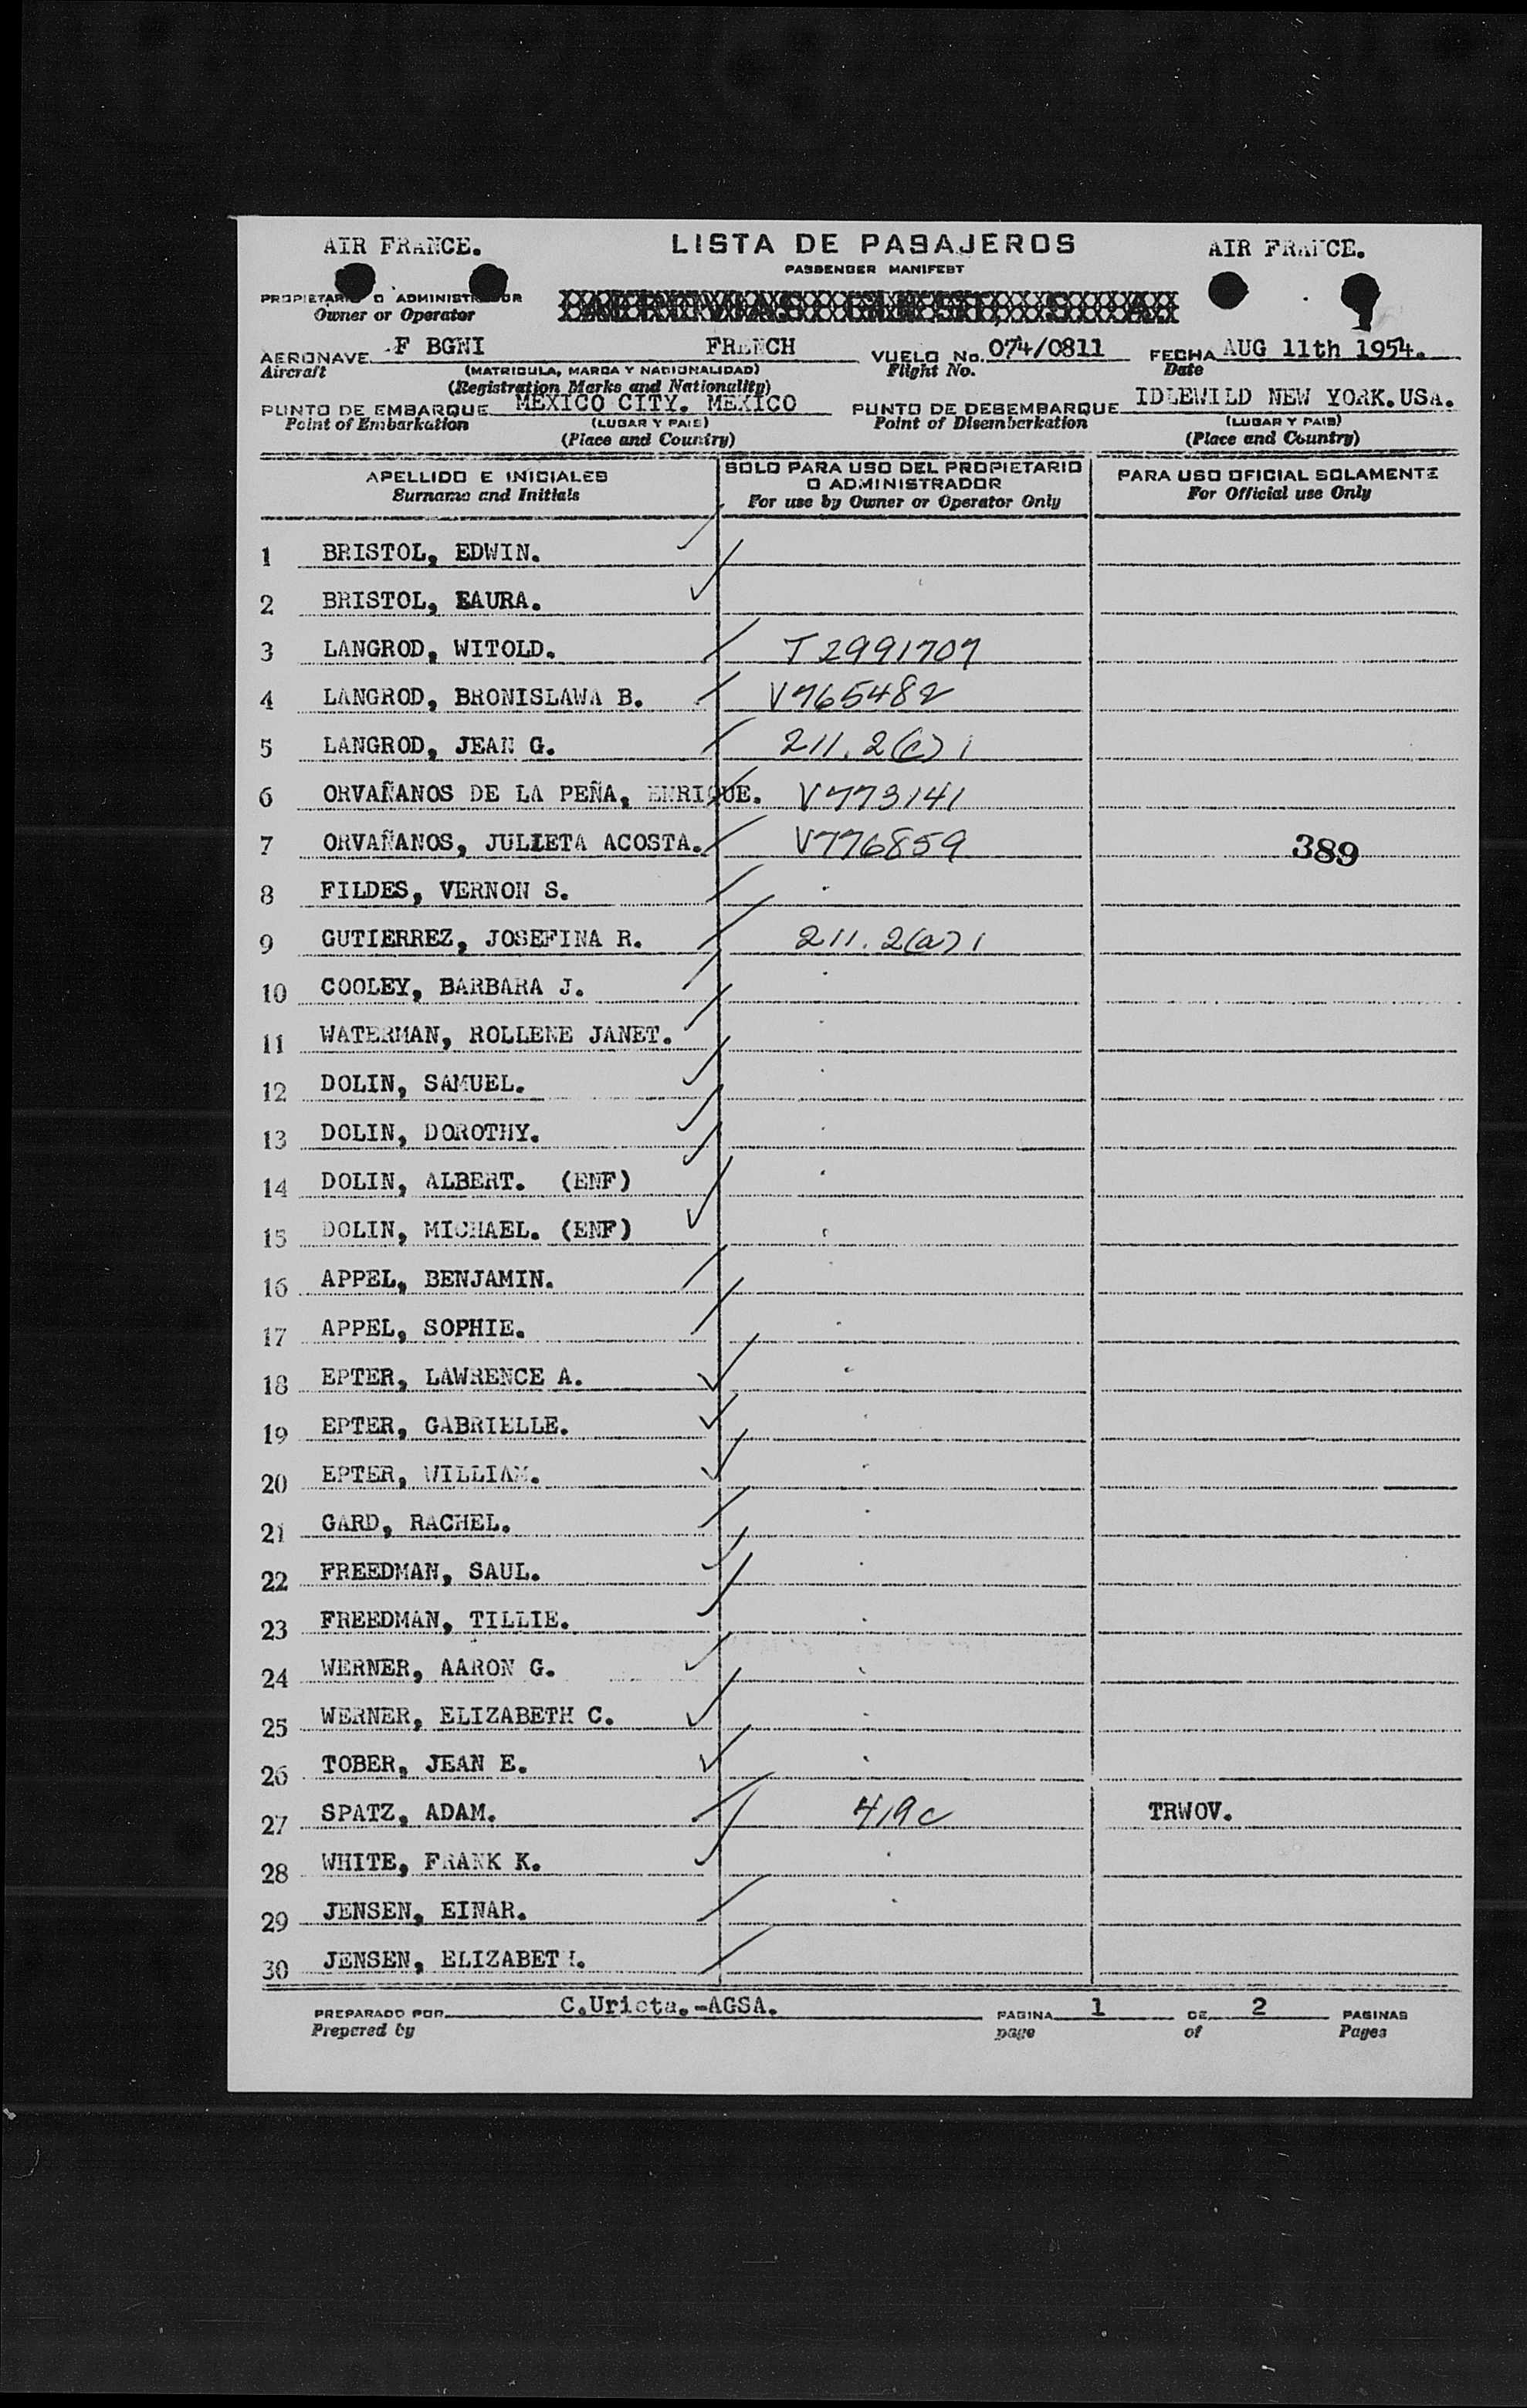 AIR FRANCE. LISTA DE PASAJEROS AIR FRANCE.
PASSENGER MANIFEST
PROPIETARIO O ADMINISTRADOR
Owner or Operator
AERONAVE F BGNI FRENCH VUELO No. 074/0811 FECHA AUG 11th 1954.
Aircraft (MATRICULA, MARCA Y NACIONALIDAD) Flight No. Date
(Registration Marks and Nationality)
PUNTO DE EMBARQUE MEXICO CITY. MEXICO PUNTO DE DESEMBARQUE IDLEWILD NEW YORK.USA.
Point of Embarkation (LUGAR Y PAIS) Point of Disembarkation (LUGAR Y PAIS)
(Place and Country) (Place and Country)
APELLIDO E INICIALES SOLO PARA USO DEL PROPIETARIO PARA USO OFICIAL SOLAMENTE
Surname and Initials O ADMINISTRADOR For Official use Only
For use by Owner or Operator Only
1 BRISTOL, EDWIN.
2 BRISTOL, LAURA.
3 LANGROD, WITOLD. T2991707
4 LANGROD, BRONISLAWA B. V765482
5 LANGROD, JEAN G. 211.2(c)1
6 ORVAÑANOS DE LA PEÑA, ENRIQUE. V773141
7 ORVAÑANOS, JULIETA ACOSTA. V776859 389
8 FILDES, VERNON S.
9 GUTIERREZ, JOSEFINA R. 211.2(a)1
10 COOLEY, BARBARA J.
11 WATERMAN, ROLLENE JANET.
12 DOLIN, SAMUEL.
13 DOLIN, DOROTHY.
14 DOLIN, ALBERT. (ENF)
15 DOLIN, MICHAEL. (ENF)
16 APPEL, BENJAMIN.
17 APPEL, SOPHIE.
18 EPTER, LAWRENCE A.
19 EPTER, GABRIELLE.
20 EPTER, WILLIAM.
21 GARD, RACHEL.
22 FREEDMAN, SAUL.
23 FREEDMAN, TILLIE.
24 WERNER, AARON G.
25 WERNER, ELIZABETH C.
26 TOBER, JEAN E.
27 SPATZ, ADAM. 419c TRWOV.
28 WHITE, FRANK K.
29 JENSEN, EINAR.
30 JENSEN, ELIZABETH.
PREPARADO POR C.Urieta.-AGSA. PAGINA 1 DE 2 PAGINAS
Prepared by page of Pages